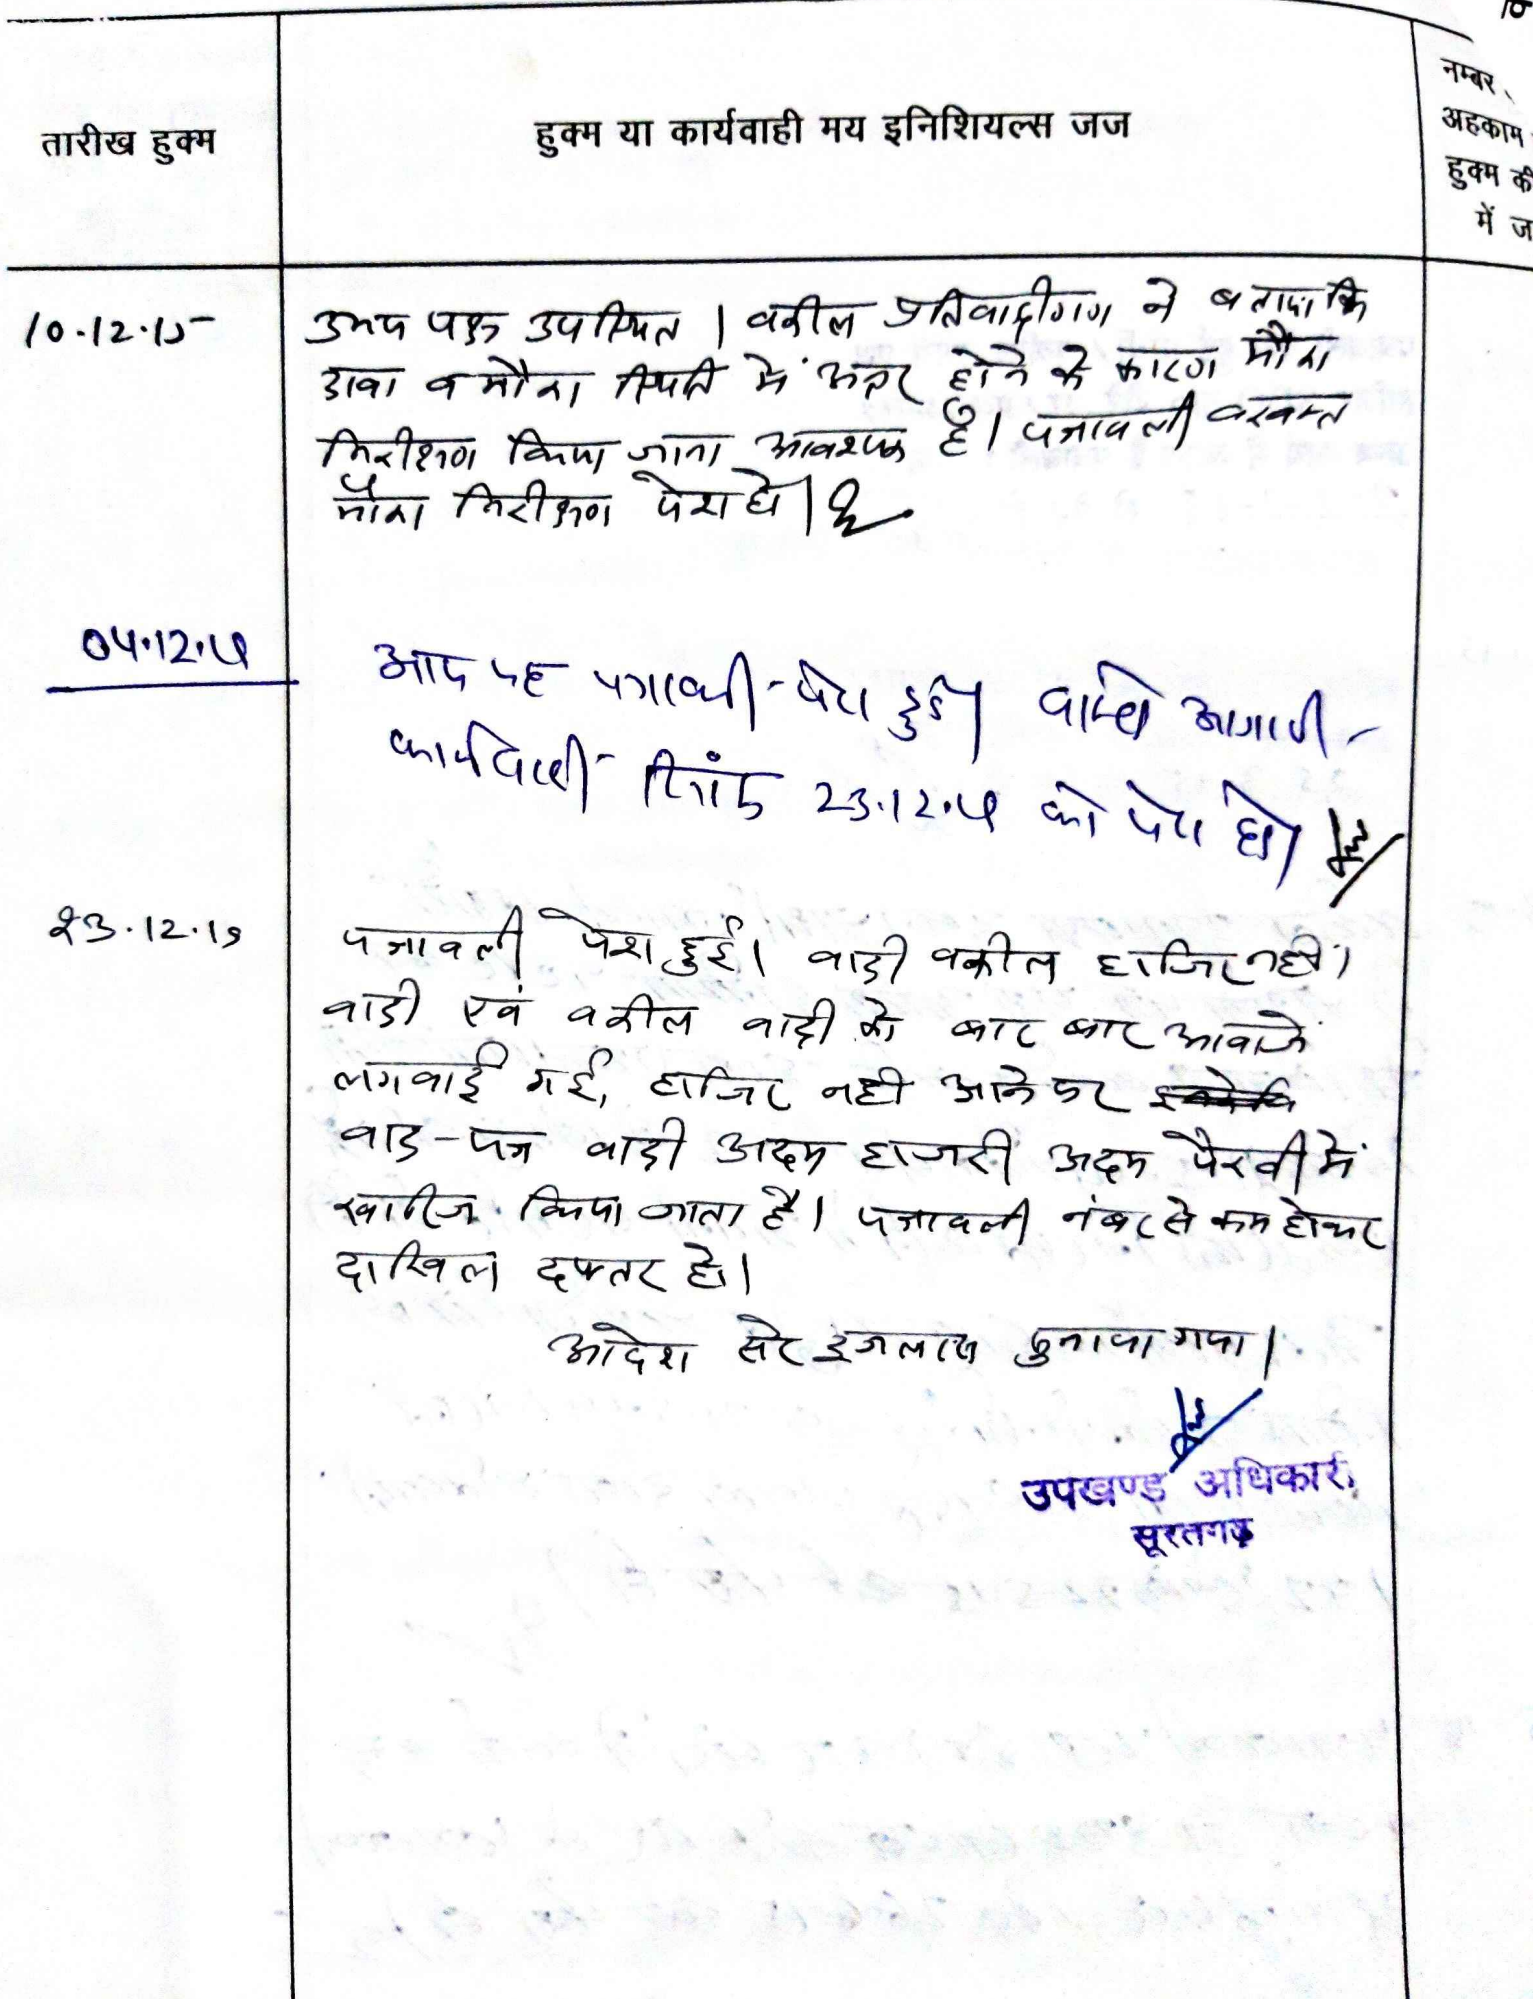 तारीख हुक्म
हुक्म या कार्यवाही मय इनिशियल्स जज
नम्बर
अहकाम
हुक्म की
में ज
10.12.15
उभय पक्ष उपस्थित । वकील प्रतिवादीगण ने बताया कि
दावा व मौका स्थिति में अंतर होने के कारण मौका
निरीक्षण किया जाना आवश्यक है। पत्रावली वरवक्त
मौका निरीक्षण पेश हो।
पत्रावली पेश हुई। कार्यवाही दिनांक 23.12.19 को पेश हो।
23.12.19
पत्रावली पेश हुई। वादी वकील हाजिर नहीं।
वादी एवं वकील वादी को बार बार आवाजें
लगवाई गई, हाजिर नही आने पर
वाद-पत्र वादी अदम हाजरी अदम पैरवी में
खारिज किया जाता है। पत्रावली नंबर से कम होकर
दाखिल दफ्तर हो।
आदेश सरे इजलास सुनाया गया।
उपखण्ड अधिकारी
सूरतगढ़